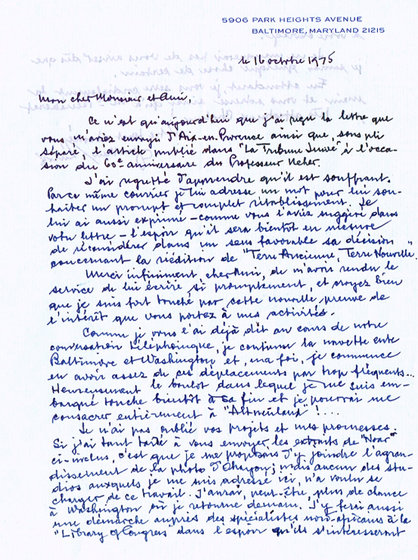 5906 PARK HEIGHTS AVENUE
BALTIMORE, MARYLAND 21215
le 16 octobre 1975
Mon cher Monsieur et Ami,
Ce n'est qu'aujourd'hui que j'ai reçu la lettre que
vous m'aviez envoyée d'Aix-en-Provence ainsi que, sous pli
séparé, l'article publié dans "La Tribune Juive" à l'occa-
sion du 60e anniversaire du Professeur Neher.
J'ai regretté d'apprendre qu'il est souffrant.
Par ce même courrier je lui adresse un mot pour lui sou-
haiter un prompt et complet rétablissement. Je
lui ai aussi exprimé - comme vous l'aviez suggéré dans
votre lettre - l'espoir qu'il sera bientôt en mesure
de reconsidérer dans un sens favorable sa décision
concernant la réédition de "Terre Ancienne, Terre Nouvelle."
Merci infiniment, cher Ami, de m'avoir rendu le
service de lui écrire si promptement, et croyez bien
que je suis fort touché par cette nouvelle preuve de
l'intérêt que vous portez à mes activités.
Comme je vous l'ai déjà dit au cours de notre
conversation téléphonique, je continue la navette entre
Baltimore et Washington et, ma foi, je commence
en avoir assez de ces déplacements par trop fréquents...
Heureusement le boulot dans lequel je me suis em-
barqué touche bientôt à sa fin et je pourrai me
consacrer entièrement à "Altneuland"!...
Je n'ai pas oublié vos projets et mes promesses.
Si j'ai tant tardé à vous envoyer les extraits de "Noar"
ci-inclus, c'est que je me proposais d'y joindre l'agran-
dissement de la photo ; mais aucun des stu-
dios auxquels je me suis adressé ici, n'a voulu se
charger de ce travail. J'aurai, peut-être, plus de chance
à Washington où je retourne demain. J'y ferai aussi
une démarche auprès des spécialistes nord-africains à la
"Library of Congress" dans l'espoir qu'ils s'intéresseront